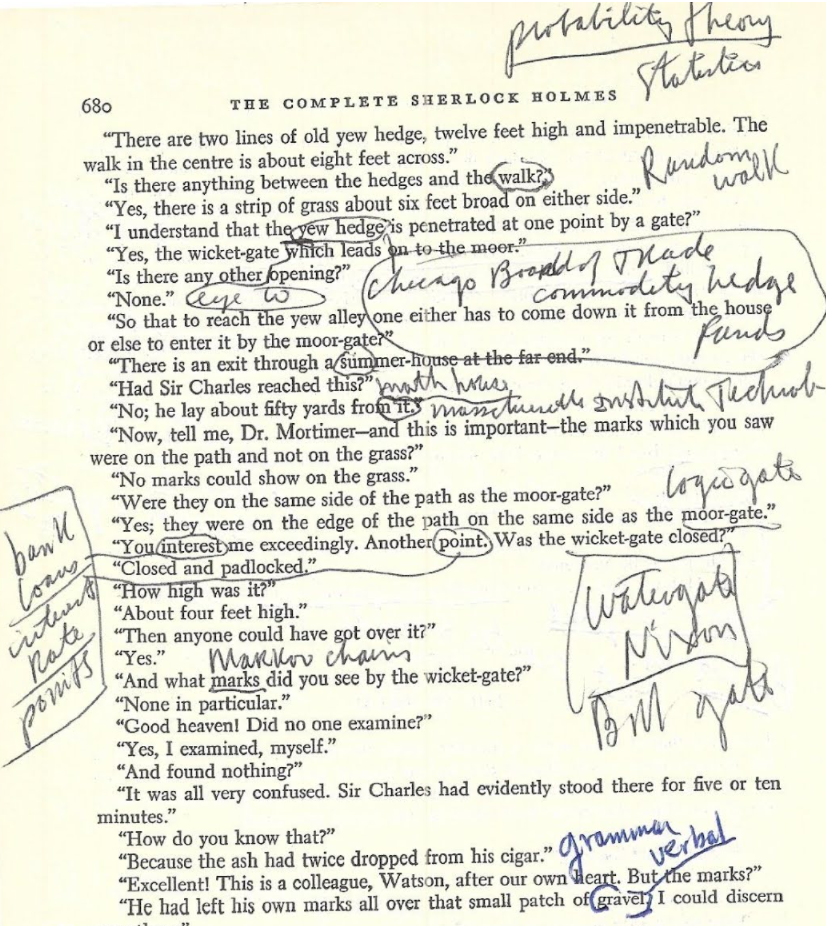 probability theory
statistics
680 THE COMPLETE SHERLOCK HOLMES
“There are two lines of old yew hedge, twelve feet high and impenetrable. The
walk in the centre is about eight feet across.”
Random
walk
“Is there anything between the hedges and the walk?”
“Yes, there is a strip of grass about six feet broad on either side.”
“I understand that the yew hedge is penetrated at one point by a gate?”
“Yes, the wicket-gate which leads on to the moor.”
Chicago Board of Trade
commodity hedge
funds
“Is there any other opening?”
“None.” eye to
“So that to reach the yew alley one either has to come down it from the house
or else to enter it by the moor-gate?”
“There is an exit through a summer-house at the far end.”
“Had Sir Charles reached this?” math house
“No; he lay about fifty yards from it.” Institute Technol
“Now, tell me, Dr. Mortimer—and this is important—the marks which you saw
were on the path and not on the grass?”
“No marks could show on the grass.”
“Were they on the same side of the path as the moor-gate?” logic gate
“Yes; they were on the edge of the path on the same side as the moor-gate.”
“You interest me exceedingly. Another point. Was the wicket-gate closed?”
“Closed and padlocked.”
bank
loans
interest
rate
points
“How high was it?”
“About four feet high.”
“Then anyone could have got over it?”
Watergate
Nixon
Bill gate
“Yes.” Markov chains
“And what marks did you see by the wicket-gate?”
“None in particular.”
“Good heaven! Did no one examine?”
“Yes, I examined, myself.”
“And found nothing?”
“It was all very confused. Sir Charles had evidently stood there for five or ten
minutes.”
“How do you know that?”
“Because the ash had twice dropped from his cigar.” grammar
verbal
“Excellent! This is a colleague, Watson, after our own heart. But the marks?”
“He had left his own marks all over that small patch of gravel; I could discern